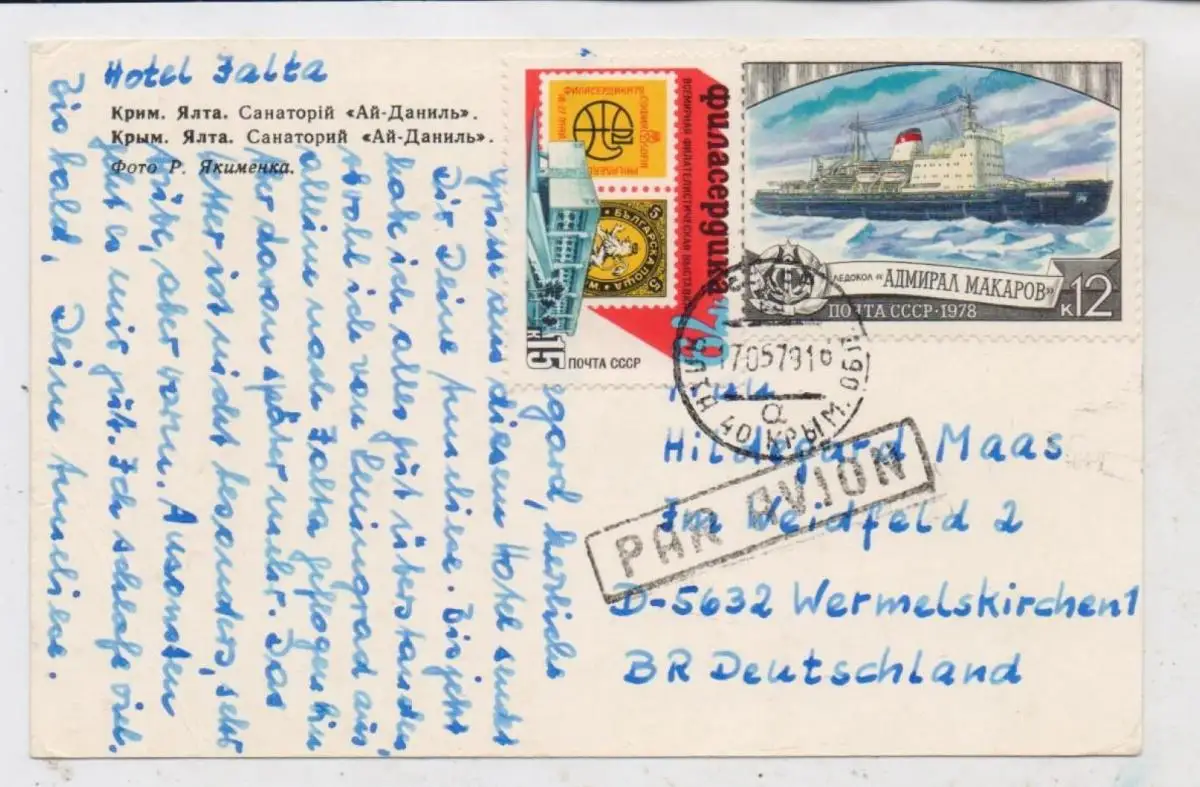 Hotel Jalta
Крим. Ялта. Санаторій «Ай-Даниль».
Крым. Ялта. Санаторий «Ай-Даниль».
Фото Р. Якименка.
herzliche
Grüße aus diesem Hotel sendet
Dir Deine Annliese. Bis jetzt
habe ich alles gut überstanden,
obwohl ich von Leningrad aus
allein nach Jalta geflogen bin
daran später mehr. Das
Wetter ist nicht besonders, sehr
aber warm. Ansonsten
geht es mir gut. Ich schlafe viel.
Bis bald, Deine Annliese.
ФИЛАСЕРДИКА 79
БЪЛГАРСКА ПОЩА
5
5
филасердика 79
ВСЕМИРНАЯ ФИЛАТЕЛИСТИЧЕСКАЯ ВЫСТАВКА
К 15
ПОЧТА СССР
ЛЕДОКОЛ «АДМИРАЛ МАКАРОВ»
ПОЧТА СССР•1978
К 12
ЯЛТА 40 КРЫМ. ОБЛ
PAR AVION
Hildegard Maas
Im Weidfeld 2
D-5632 Wermelskirchen 1
BR Deutschland